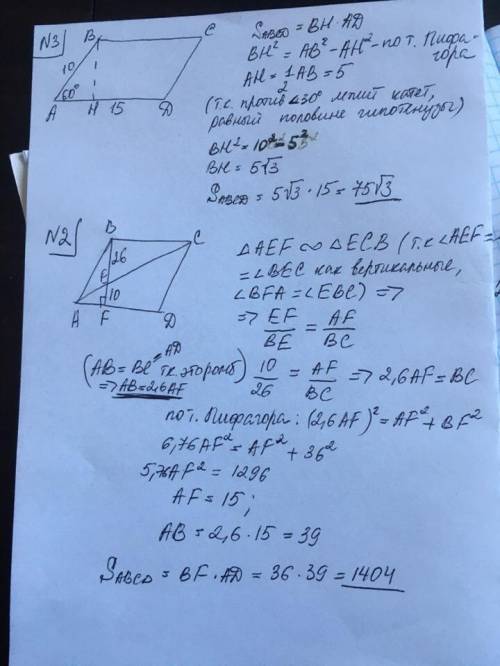 N3
B
C
10
60°
A
H
15
D
S_ABCD = BH · AD
BH² = AB² - AH² - по т. Пифа-
гора
AH = 1/2 AB = 5
(т.к. против ∠30° лежит катет,
равный половине гипотенузы)
BH² = 10² - 5²
BH = 5√3
S_ABCD = 5√3 · 15 = 75√3
N2
B
C
26
E
10
A
F
D
△AEF ∞ △ECB (т.к ∠AEF =
= ∠BEC как вертикальные,
∠BFA = ∠EBC) =>
=> EF/BE = AF/BC
(AB = BC = AD т.к. эторомб)
=> AB = 2,6AF
10/26 = AF/BC => 2,6AF = BC
по т. Пифагора: (2,6AF)² = AF² + BF²
6,76AF² = AF² + 36²
5,76AF² = 1296
AF = 15;
AB = 2,6 · 15 = 39
S_ABCD = BF · AD = 36 · 39 = 1404